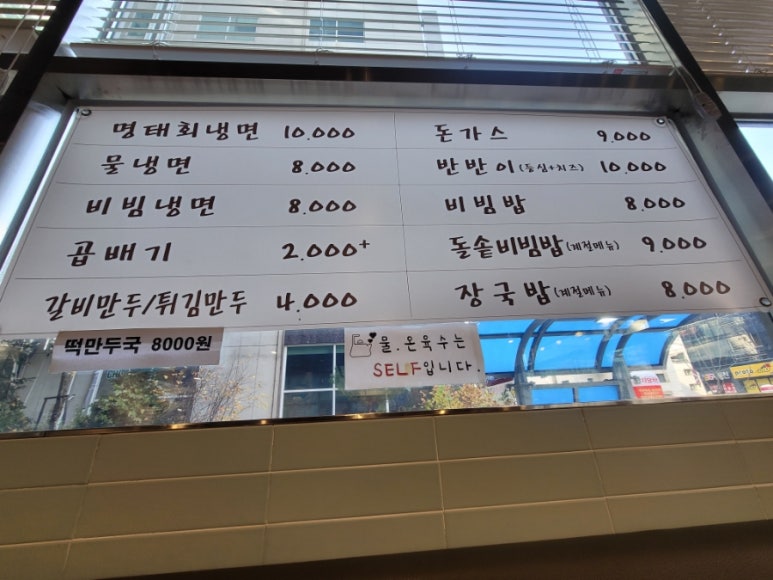 명태회냉면 10.000
물냉면 8.000
비빔냉면 8.000
곱배기 2.000+
갈비만두/튀김만두 4.000
돈가스 9.000
반반이(등심+치즈) 10.000
비빔밥 8.000
돌솥비빔밥(계절메뉴) 9.000
장국밥(계절메뉴) 8.000
떡만두국 8000원
물.온육수는
SELF입니다.